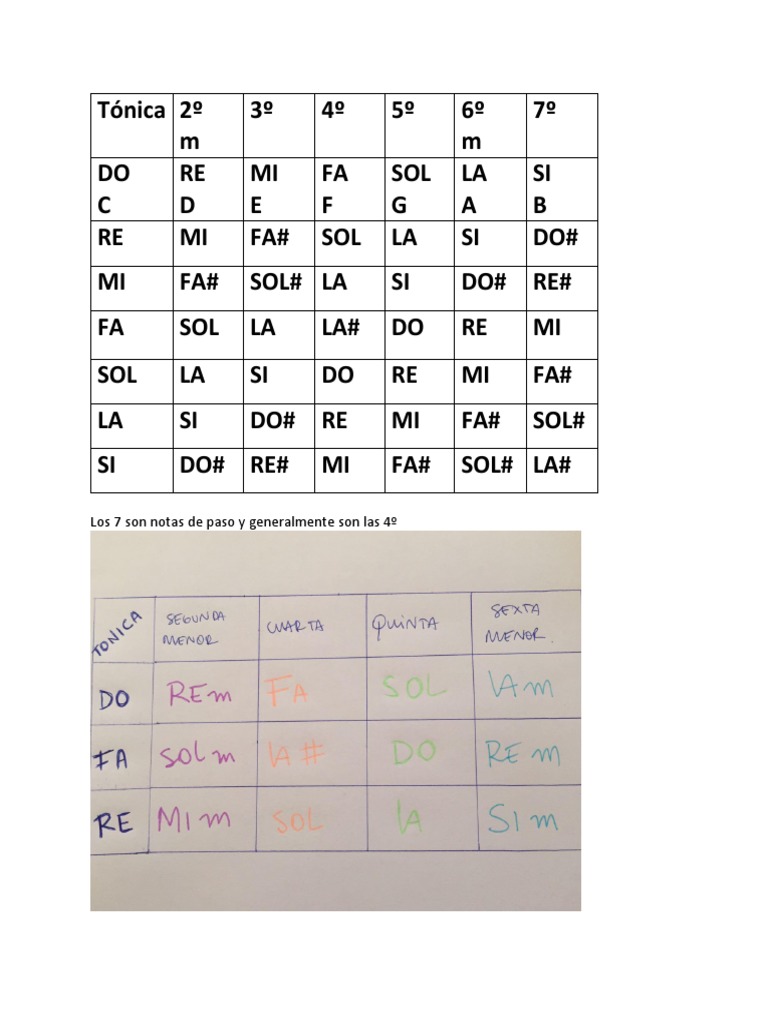 Tónica 2º 3º 4º 5º 6º 7º
m m
DO RE MI FA SOL LA SI
C D E F G A B
RE MI FA# SOL LA SI DO#
MI FA# SOL# LA SI DO# RE#
FA SOL LA LA# DO RE MI
SOL LA SI DO RE MI FA#
LA SI DO# RE MI FA# SOL#
SI DO# RE# MI FA# SOL# LA#
Los 7 son notas de paso y generalmente son las 4º
TONICA SEGUNDA MENOR CUARTA QUINTA SEXTA MENOR.
DO REm FA SOL LAm
FA SOLm LA# DO REm
RE MIm SOL LA SIm